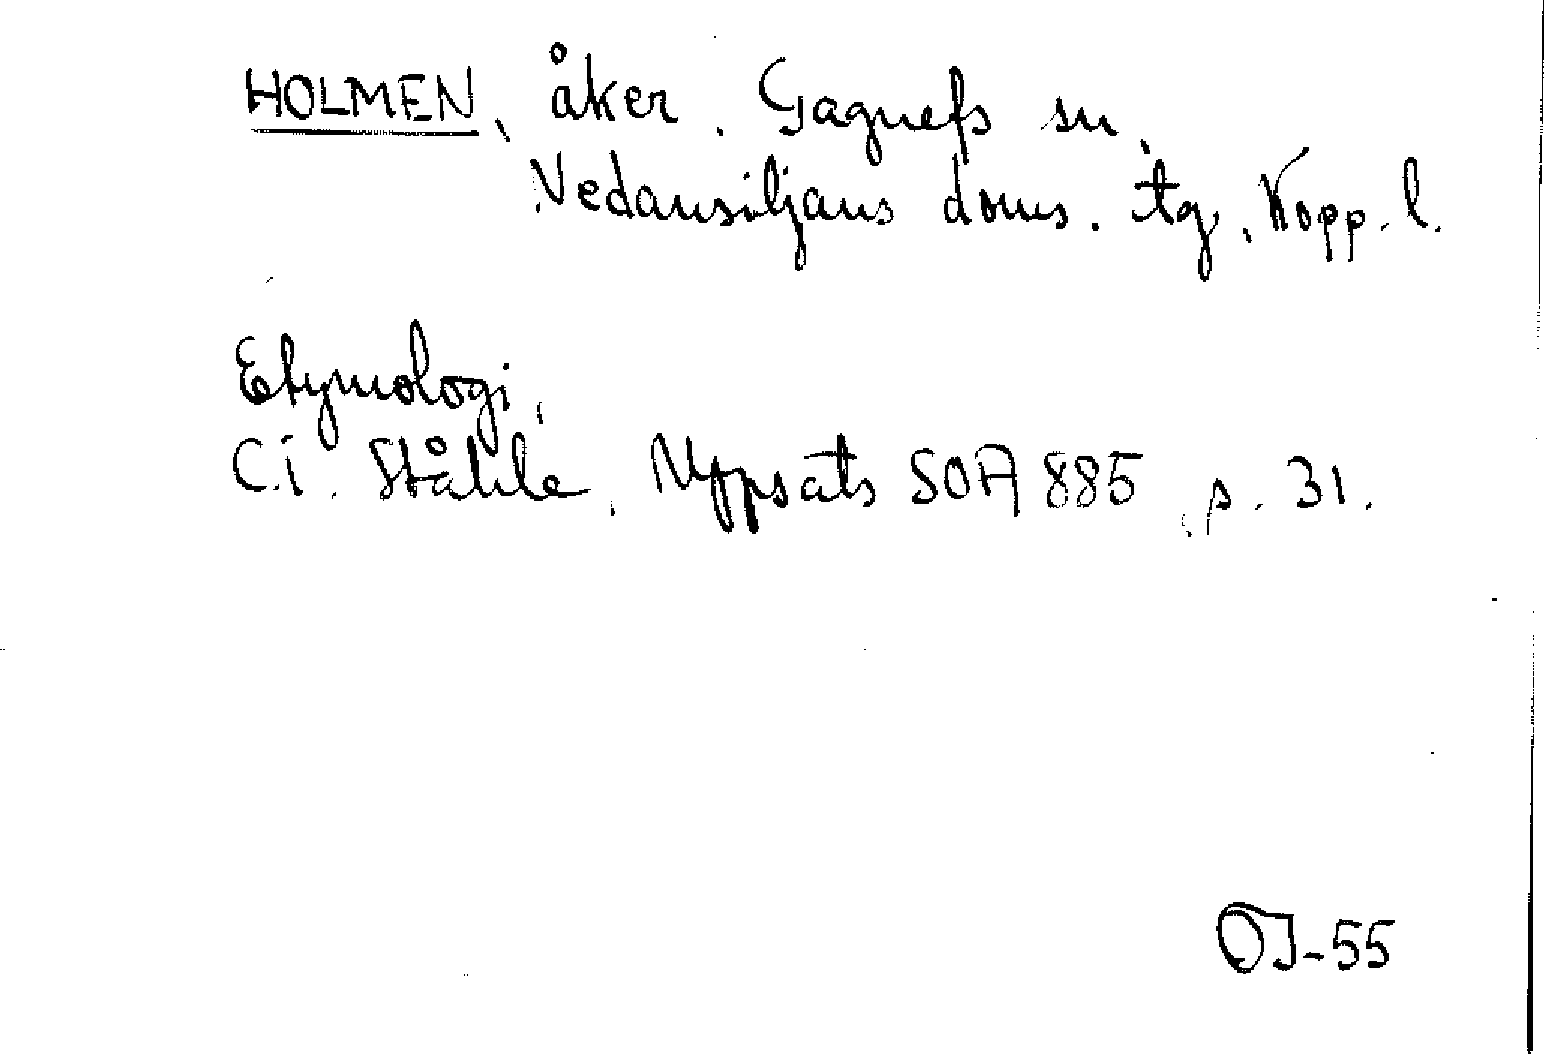 HOLMEN, åker. Gagnefs sn,
Nedansiljans doms. tg, Kopp. l.
Etymologi,
C.I. Ståhle, Uppsats SOA 885, s. 31.
OJ-55